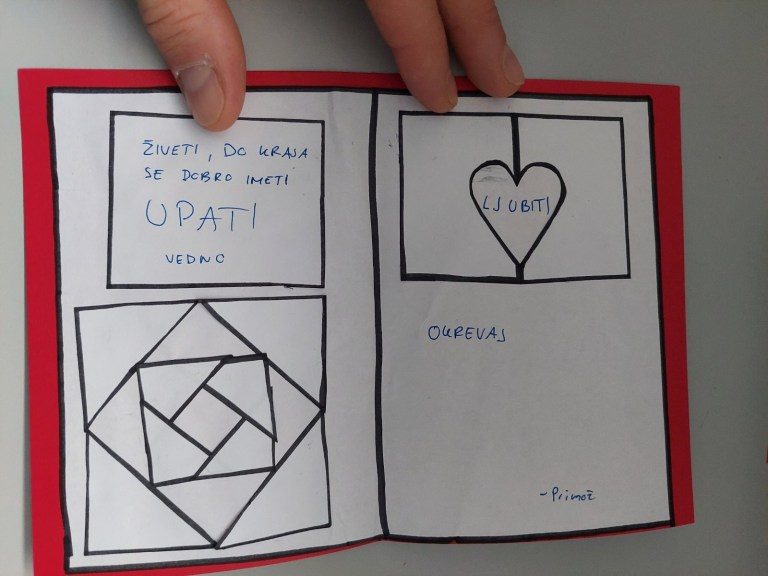 ŽIVETI, DO KRAJA
SE DOBRO IMETI
UPATI
VEDNO
LJUBITI
OKREVAJ
-Primož